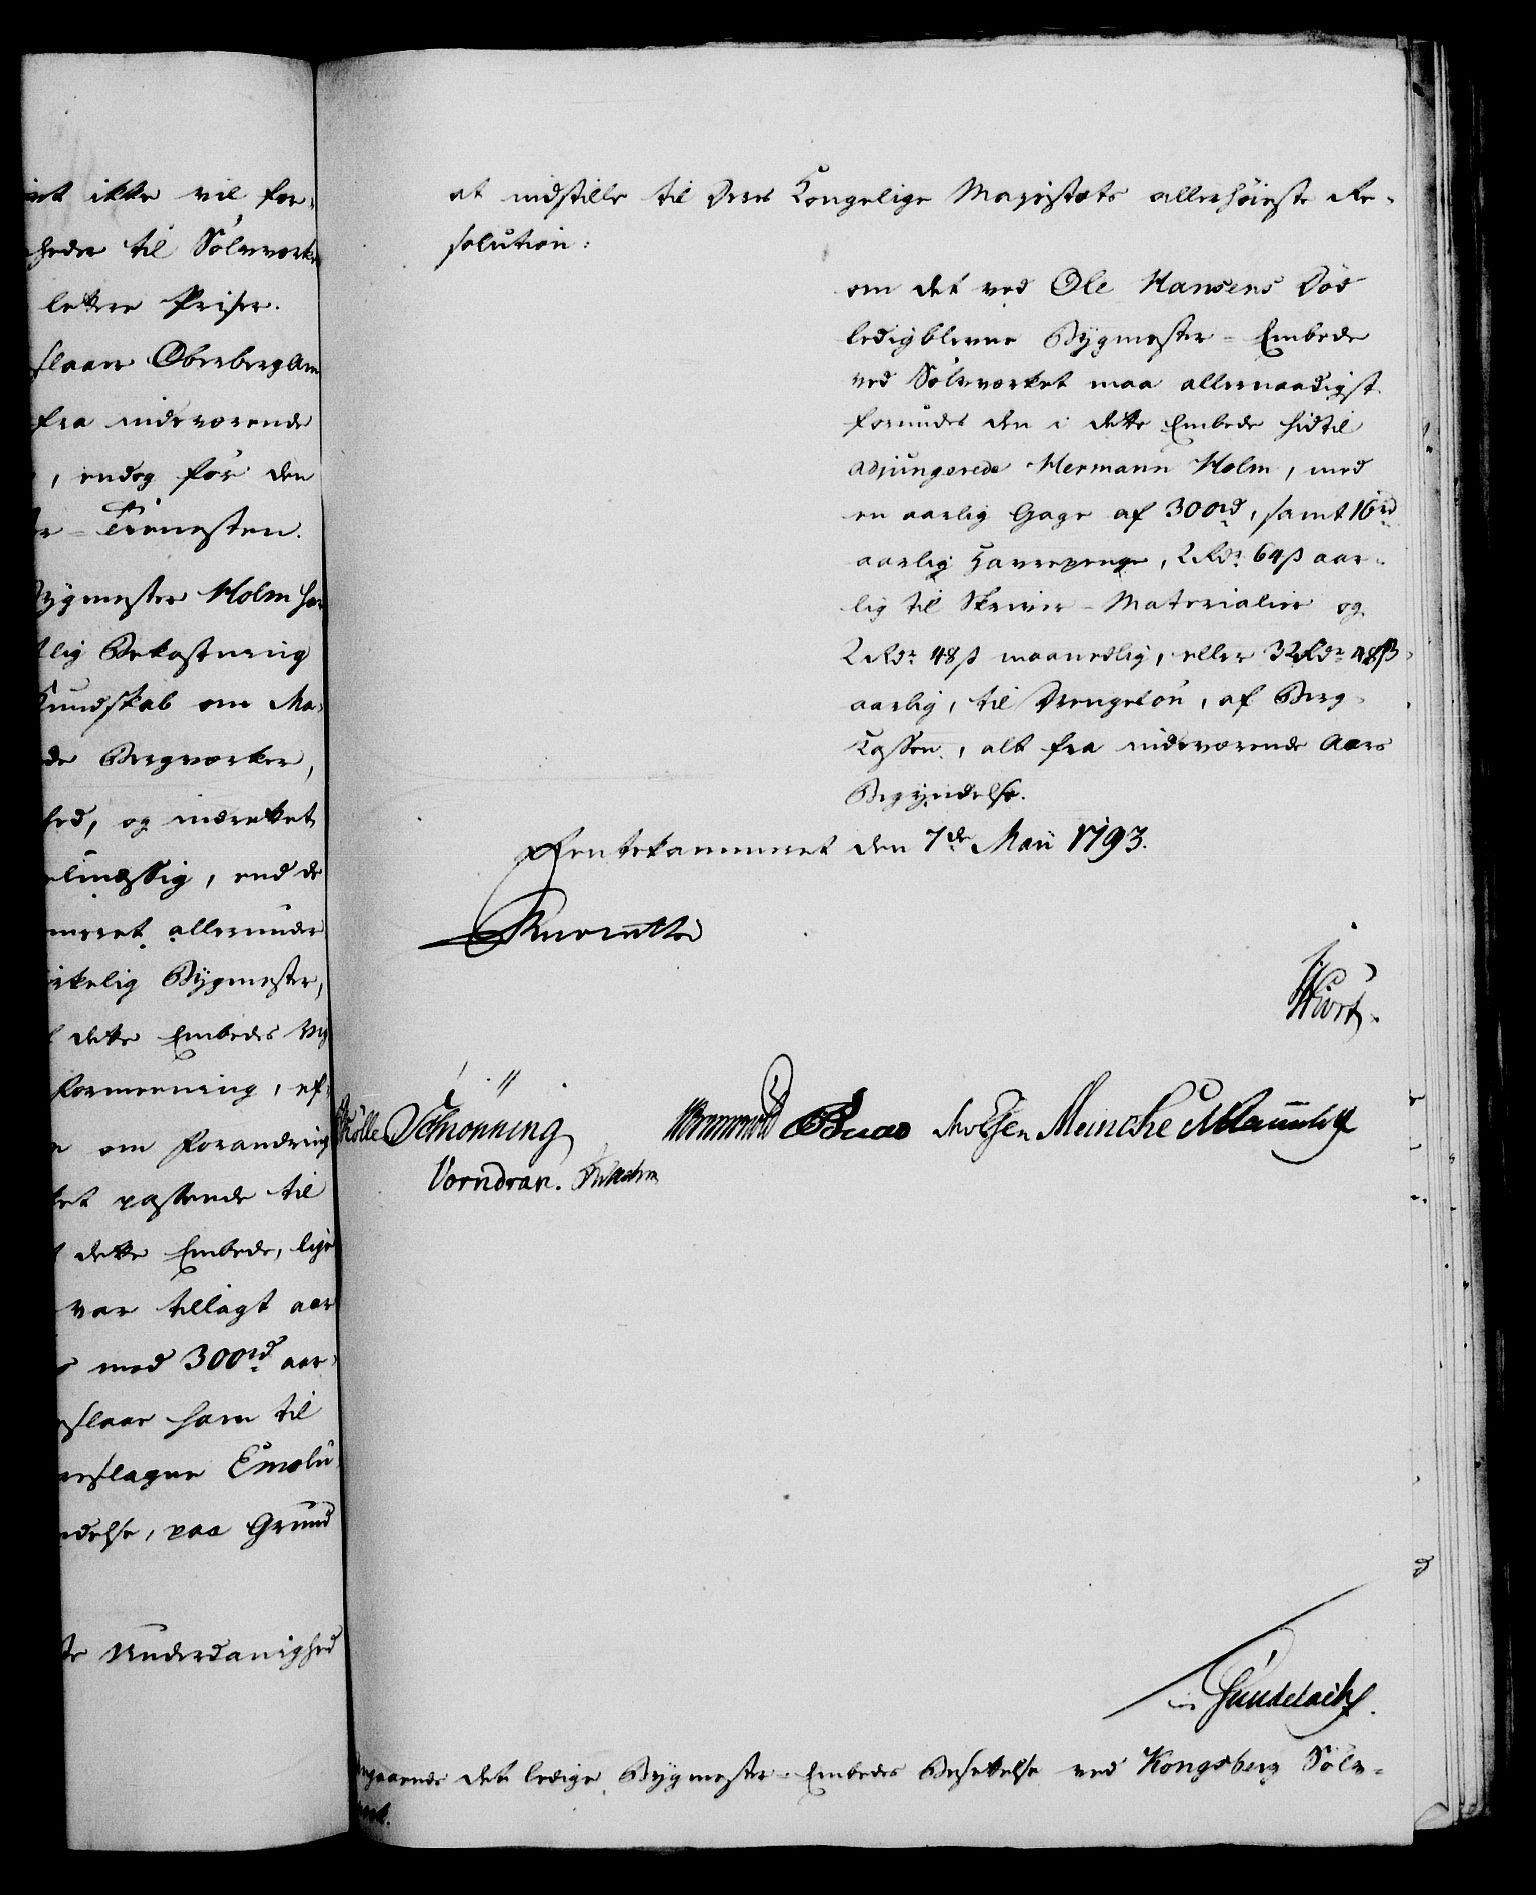 int ikke vil for-
heder til Sölvværke
lettere Priser.
slaaer Oberbergam
fra indeværende
, endog for den
r-Tienesten.
Bygmester Holm har
tlig Bekostning
Kundskab om Ma-
de Bergværker,
hed, og indrettet
elmæssig, end de
meret allerunder
irkelig Bygmester,
dette Embedes
Formeening, ef-
n om Forandring
et passende til
t dette Embede, lige
var tillagt aar
med 300rd aar-
slaaer ham til
reslagne Emolu-
ndelse, paa Grund
te Underdanighed
at indstille til Deres Kongelige Majestæts allerhöieste Re-
solution:
om det ved Ole Hansens Död
ledigblevne Bygmester-Embede
ved Sölvværket maa allernaadigst
forundes den i dette Embede hidtil
adjungerede Hermann Holm, med
en aarlig Gage af 300rd, samt 16rd
aarlig Havrepenge, 2 Rdr 64 ß aar-
lig til Skriver-Materialier og
2 Rdr 48 ß maanedlig, eller 32 Rdr 48 ß
aarlig, til Drengelön, af Berg-
Cassen, alt fra indeværende Aars
Begyndelse.
Rentekammeret den 7de Maii 1793.
Hiort.
Rölle Schönning Meinche
Vorndran.
Gundelach.
angaaende det ledige Bygmester-Embedes Besættelse ved Kongsberg Sölv-
værk.